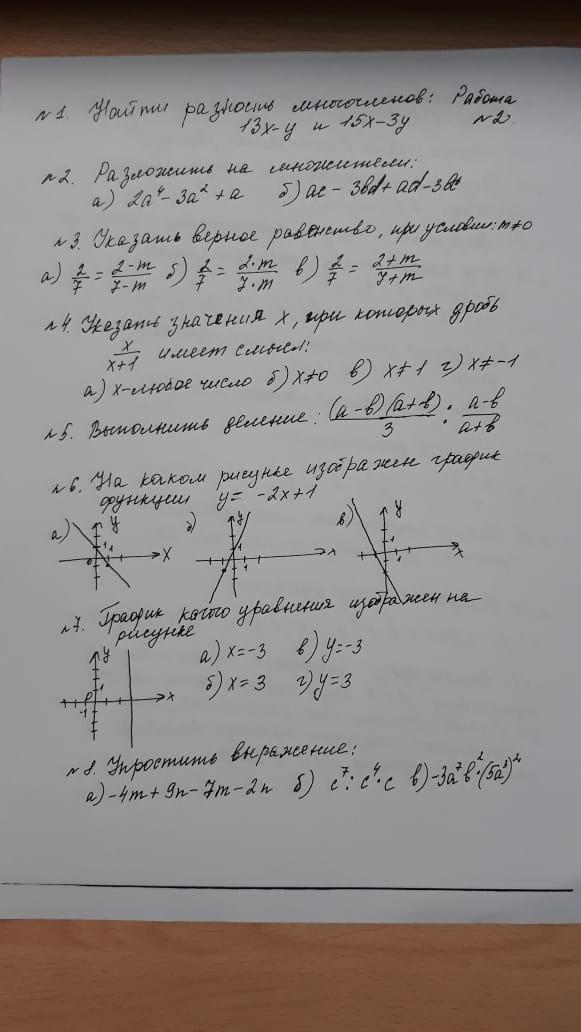 №1. Найти разность многочленов: Работа
13x-y и 15x-3y №2.
№2. Разложить на множители:
а) 2a⁴-3a²+a б) ac-3bd+ad-3bc
№3. Указать верное равенство, при условии: m≠0
а) 2/7 = (2-m)/(7-m) б) 2/7 = (2·m)/(7·m) в) 2/7 = (2+m)/(7+m)
№4. Указать значения x, при которых дробь
x/(x+1) имеет смысл:
а) x-любое число б) x≠0 в) x≠1 г) x≠-1
№5. Выполнить деление: (a-b)(a+b)/3 : (a-b)/(a+b)
№6. На каком рисунке изображен график
функции y= -2x+1
а) y x б) y x в) y x
№7. График какого уравнения изображен на
рисунке
y x а) x=-3 в) y=-3
б) x=3 г) y=3
№8. Упростить выражение:
а) -4m+9n-7m-2n б) c⁷:c⁴·c в) -3a⁷b²·(5a³)²